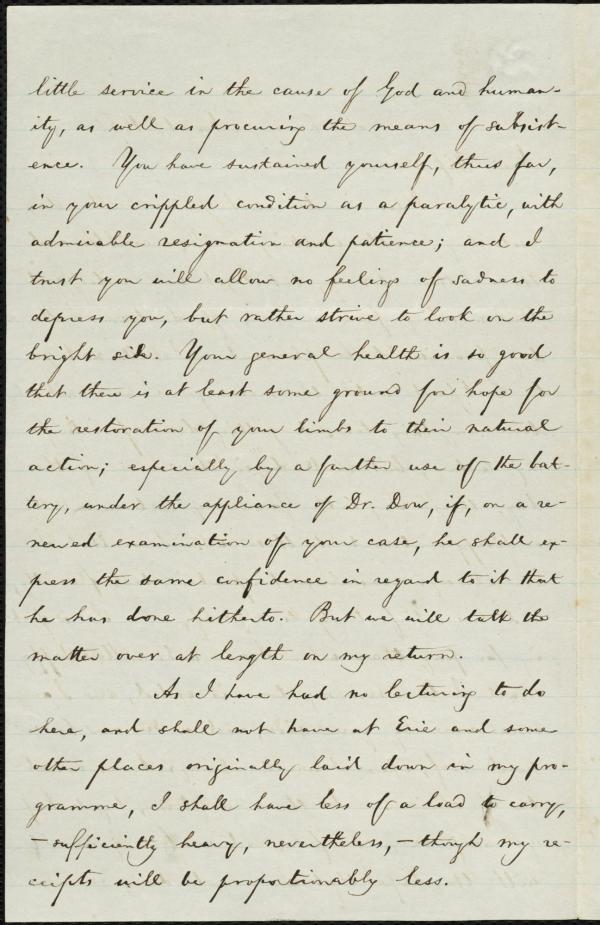 little service in the cause of God and human-
ity, as well as procuring the means of subsist-
ence. You have sustained yourself, thus far,
in your crippled condition as a paralytic, with
admirable resignation and patience; and I
trust you will allow no feelings of sadness to
depress you, but rather strive to look on the
bright side. Your general health is so good
that there is at least some ground for hope for
the restoration of your limbs to their natural
action; especially by a further use of the bat-
tery, under the appliance of Dr. Dow, if, on a re-
newed examination of your case, he shall ex-
press the same confidence in regard to it that
he has done hitherto. But we will talk the
matter over at length on my return.
As I have had no lecturing to do
here, and shall not have at Erie and some
other places originally laid down in my pro-
gramme, I shall have less of a load to carry,
—sufficiently heavy, nevertheless,—though my re-
ceipts will be proportionably less.